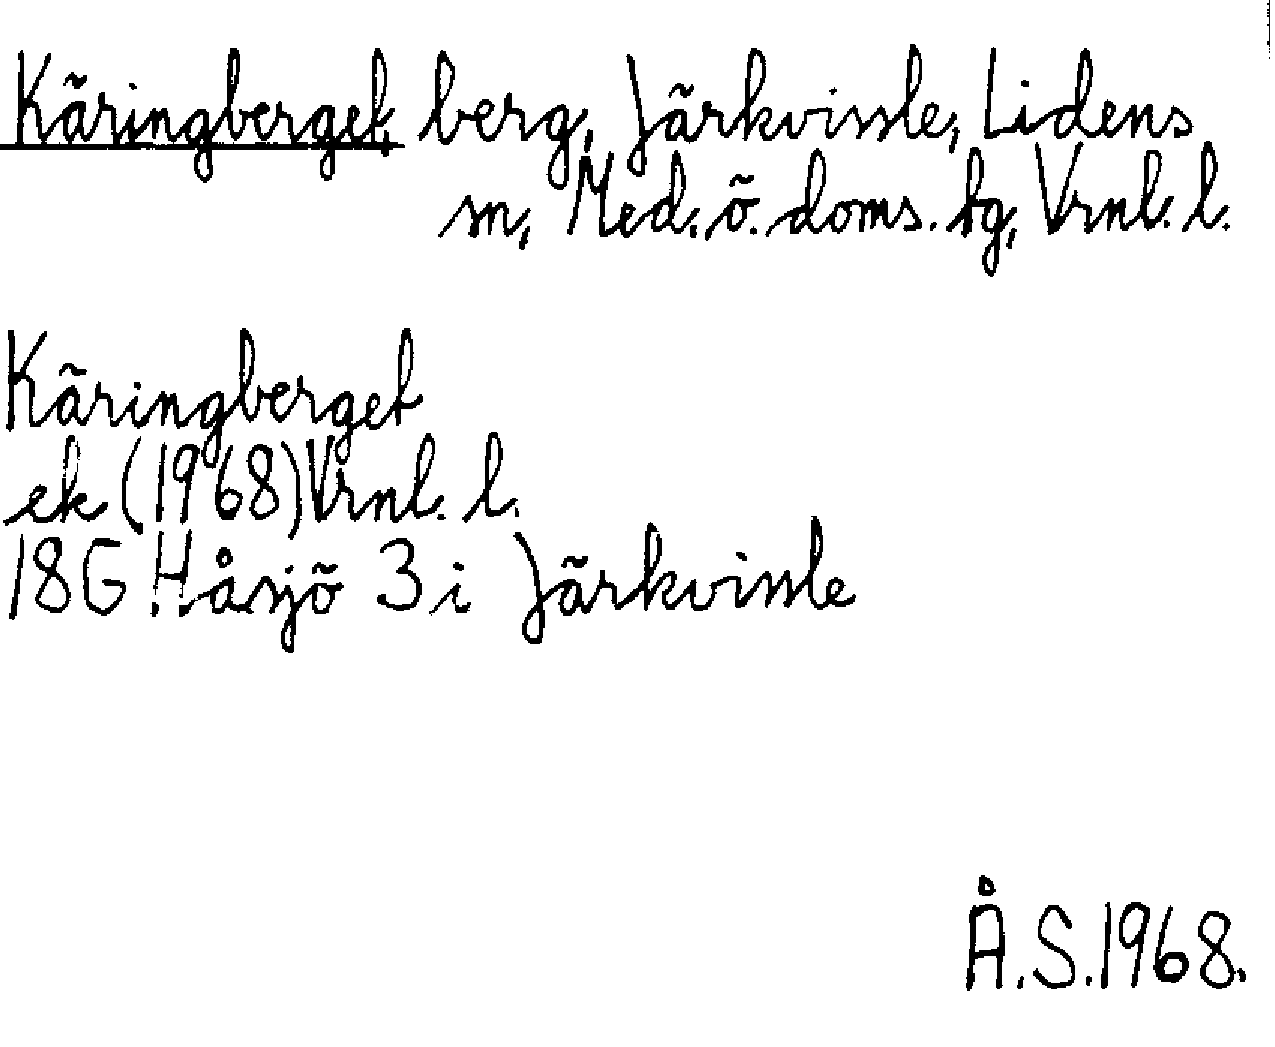 Käringberget, berg, Järkvissle, Lidens
sn, Med. ö. doms. tg, Vrnl. l.
Käringberget
ek (1968) Vrnl. l.
18G Håsjö 3 i Järkvissle
Å.S. 1968.